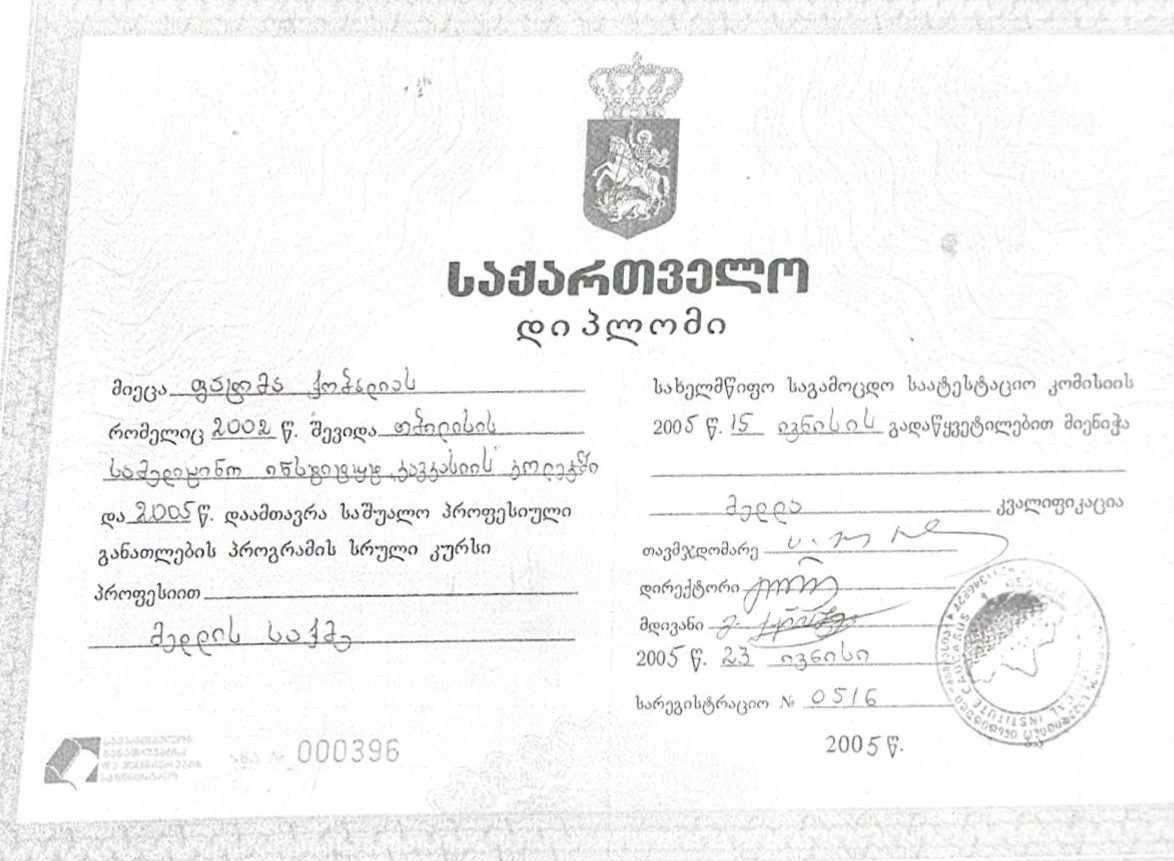 საქართველო
დიპლომი
მიეცა ფატმა ქობადიას
რომელიც 2002 წ. შევიდა თბილისის
სამედიცინო ინსტიტუტ კავკასიის კოლეჯში
და 2005 წ. დაამთავრა საშუალო პროფესიული
განათლების პროგრამის სრული კურსი
პროფესიით
მედდის საქმე
სახელმწიფო საგამოცდო საატესტაციო კომისიის
2005 წ. 15 ივნისის გადაწყვეტილებით მიენიჭა
მედდა კვალიფიკაცია
თავმჯდომარე
დირექტორი
მდივანი
2005 წ. 23 ივნისი
სარეგისტრაციო № 0516
2005 წ.
საქართველოს
განათლებისა
და მეცნიერების
სამინისტრო
№ 000396
INSTITUTE CAUCASUS